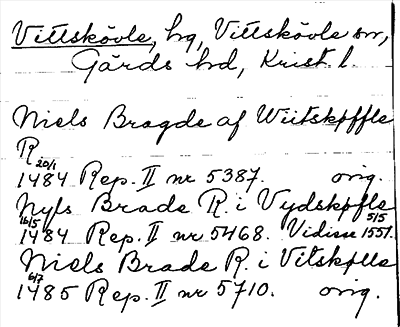 Vittskövle, hg, Vittskövle sn,
Gärds hd, Krist. l.
Niels Bragde af Wiitskøffle
R
20/1
1484 Rep. II nr 5387. orig.
Nyls Brade R. i Vydskøfle
16/5 5/5
1484 Rep. II nr 5468. Vidisse 1551.
Niels Brade R. i Vitskølle
6/7
1485 Rep. II nr 5710. orig.